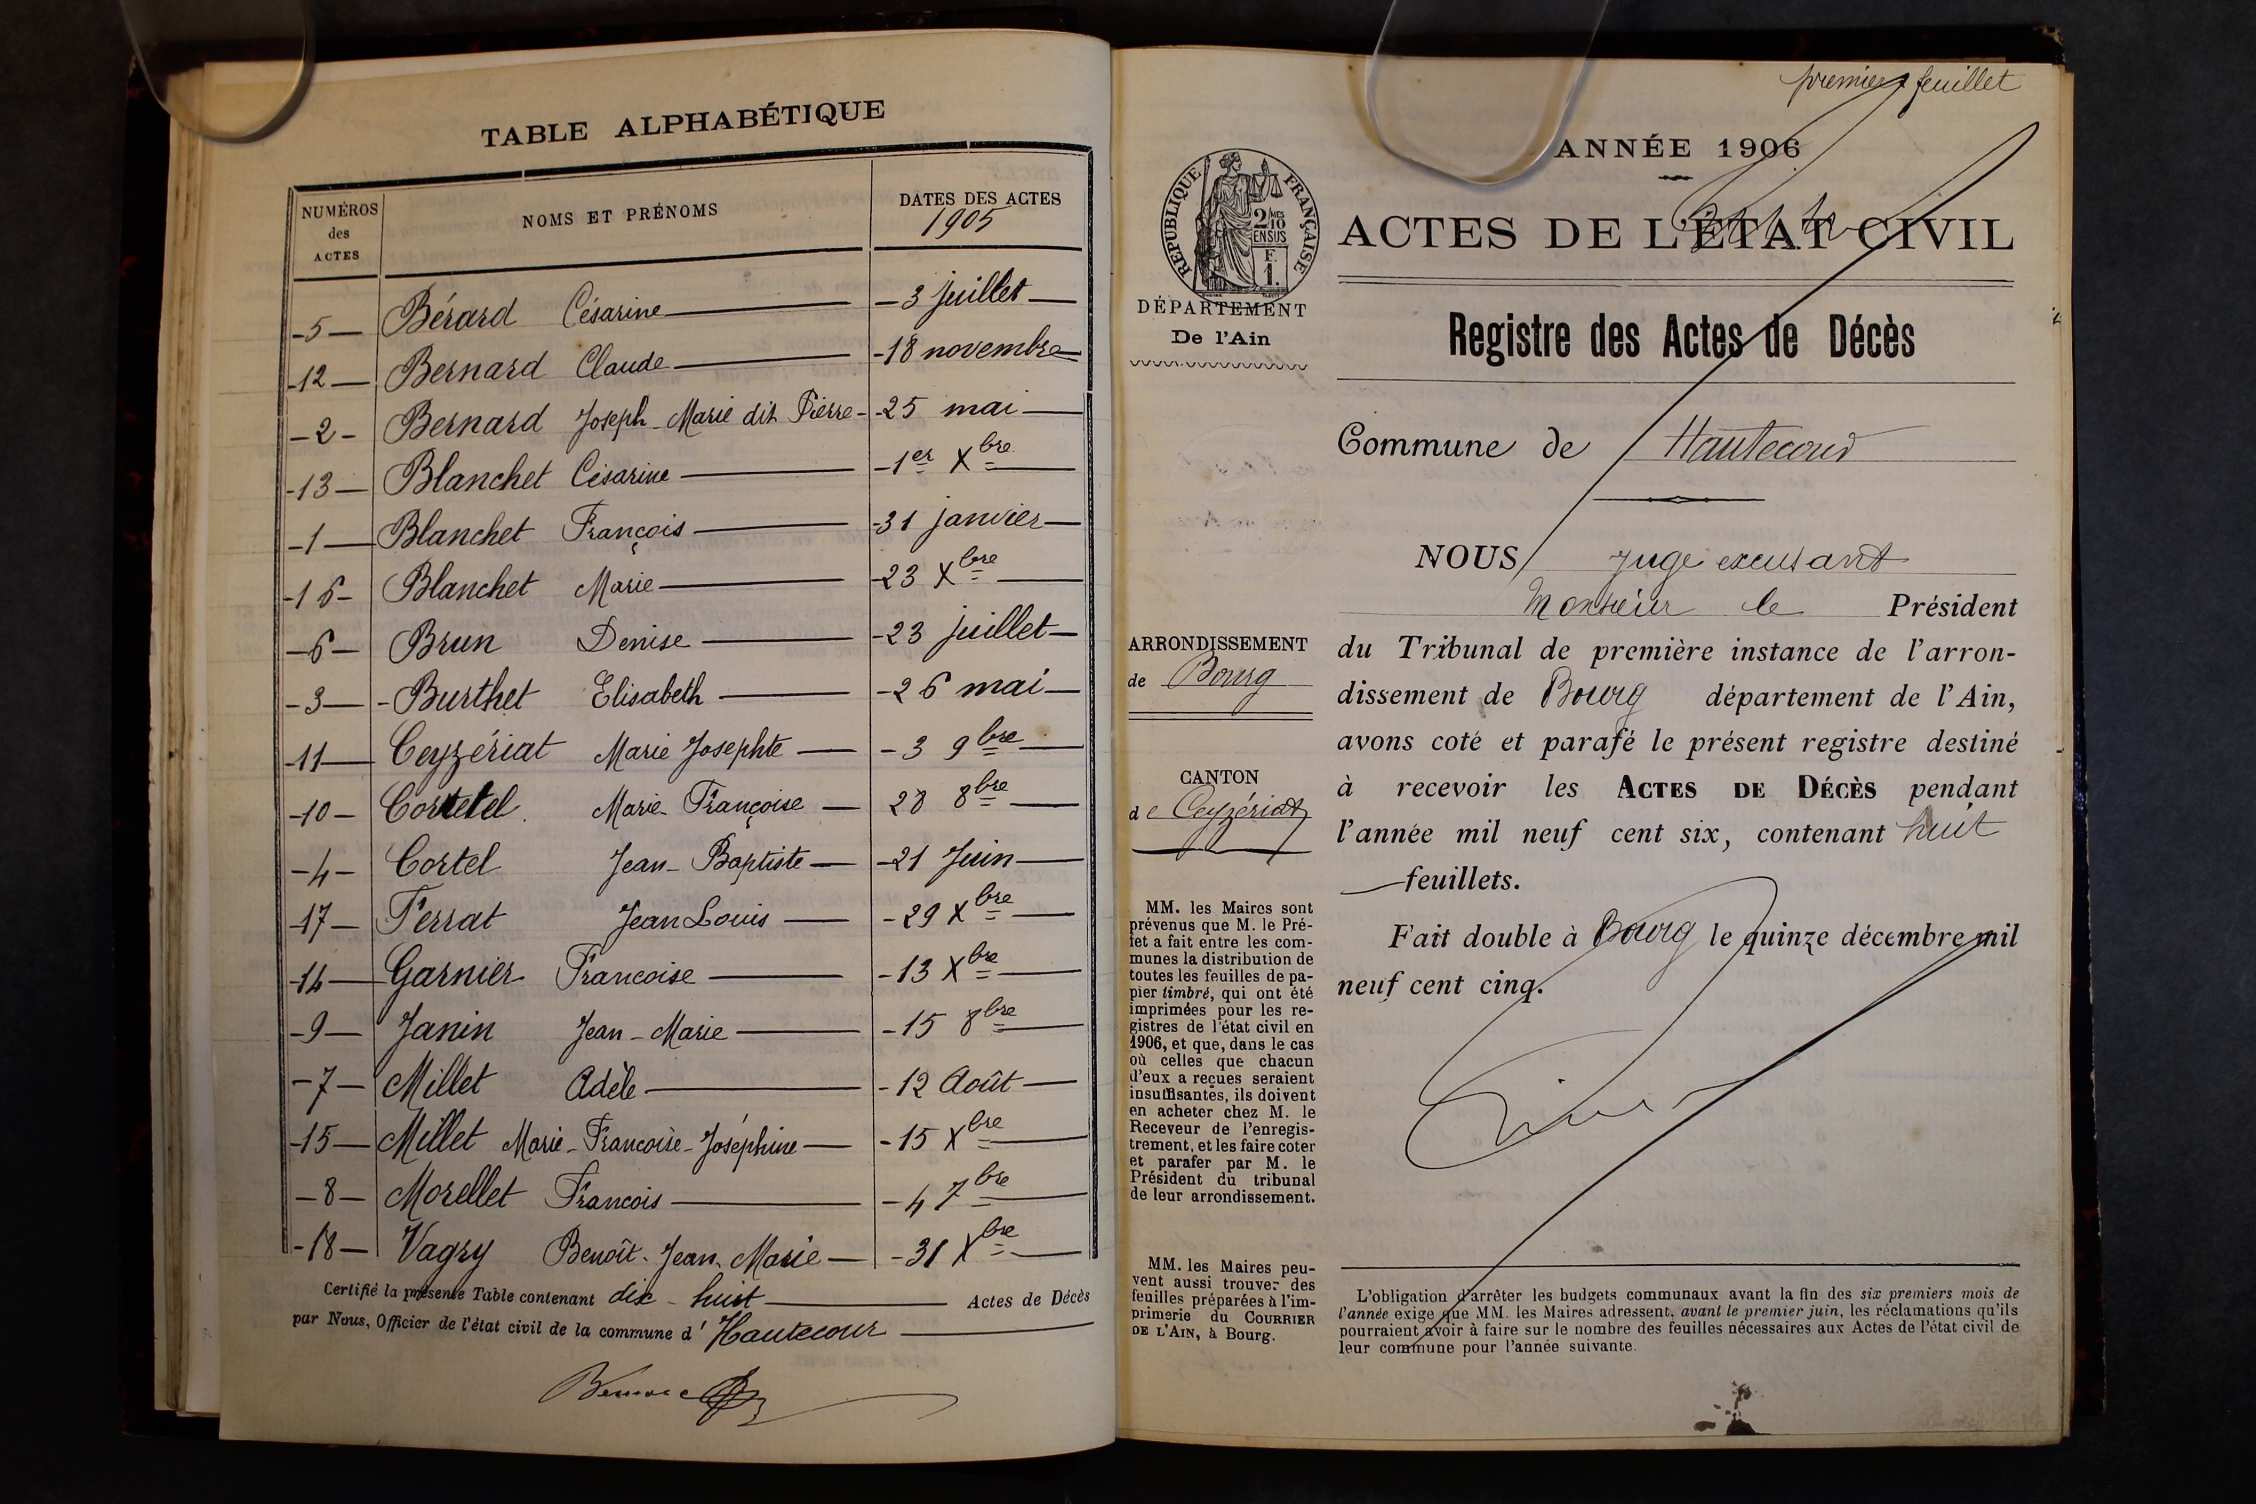 TABLE ALPHABÉTIQUE
NUMÉROS des ACTES NOMS ET PRÉNOMS DATES DES ACTES
1905
-5- Bérard Césarine -3 juillet
-12- Bernard Claude -18 novembre
-2- Bernard Joseph-Marie dit Pierre -25 mai
-13- Blanchet Césarine -1er Xbre
-1- Blanchet François -31 janvier
-16- Blanchet Marie -23 Xbre
-6- Brun Denise -23 juillet
-3- Burthet Elisabeth -26 mai
-11- Ceyzériat Marie Josephte -3 9bre
-10- Cortetel Marie-Françoise 28 8bre
-4- Cortel Jean-Baptiste -21 Juin
-17- Ferrat Jean Louis -29 Xbre
-14- Garnier Francoise -13 Xbre
-9- Janin Jean-Marie -15 8bre
-7- Millet Adèle -12 Août
-15- Millet Marie-Francoise-Joséphine -15 Xbre
-8- Morellet Francois -4 7bre
-18- Vagry Benoît-Jean-Marie -31 Xbre
Certifié la présente Table contenant dix-huit Actes de Décès
par Nous, Officier de l'état civil de la commune d'Hautecour
premier feuillet
ANNÉE 1906
RÉPUBLIQUE FRANÇAISE
2/10 MES
EN SUS
F.
1.
ACTES DE L'ÉTAT CIVIL
DÉPARTEMENT
De l'Ain
Registre des Actes de Décès
Commune de Hautecour
NOUS Juge excusant
Monsieur le Président
du Tribunal de première instance de l'arron-
dissement de Bourg département de l'Ain,
avons coté et parafé le présent registre destiné
à recevoir les ACTES DE DÉCÈS pendant
l'année mil neuf cent six, contenant huit
feuillets.
Fait double à Bourg le quinze décembre mil
neuf cent cinq.
ARRONDISSEMENT
de Bourg
CANTON
de Ceyzériat
MM. les Maires sont
prévenus que M. le Pré-
fet a fait entre les com-
munes la distribution de
toutes les feuilles de pa-
pier timbré, qui ont été
imprimées pour les re-
gistres de l'état civil en
1906, et que, dans le cas
où celles que chacun
d'eux a reçues seraient
insuffisantes, ils doivent
en acheter chez M. le
Receveur de l'enregis-
trement, et les faire coter
et parafer par M. le
Président du tribunal
de leur arrondissement.
MM. les Maires peu-
vent aussi trouver des
feuilles préparées à l'im-
primerie du COURRIER
DE L'AIN, à Bourg.
L'obligation d'arrêter les budgets communaux avant la fin des six premiers mois de
l'année exige que MM. les Maires adressent, avant le premier juin, les réclamations qu'ils
pourraient avoir à faire sur le nombre des feuilles nécessaires aux Actes de l'état civil de
leur commune pour l'année suivante.